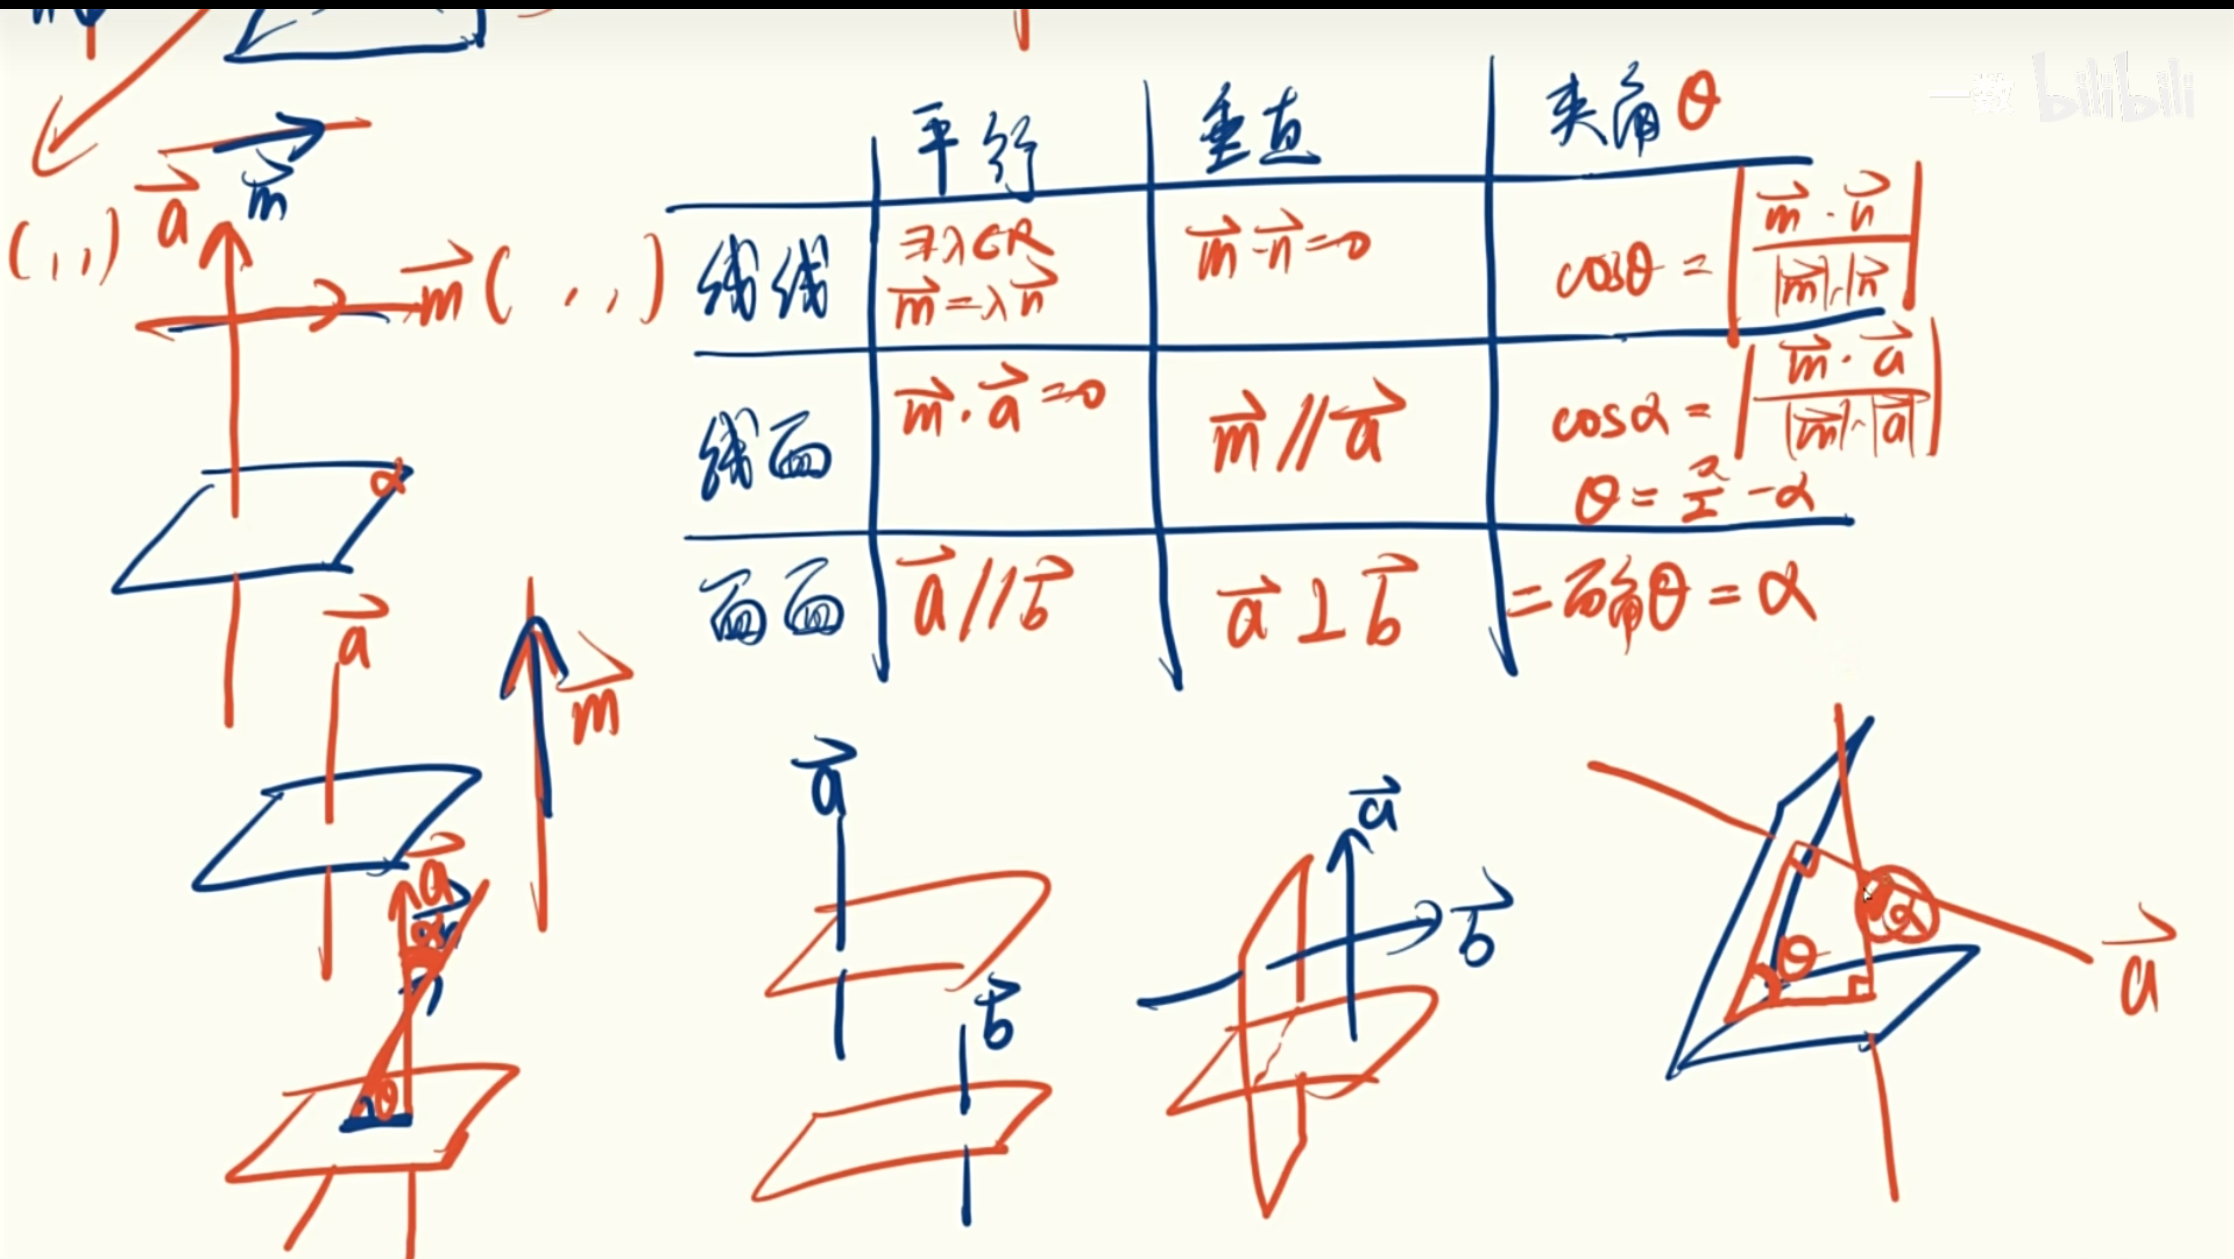 一数 bilibili
平行 垂直 夹角θ
线线 ∃λ∈R m⃗=λn⃗ m⃗·n⃗=0 cosθ=|m⃗·n⃗/|m⃗|·|n⃗||
线面 m⃗·a⃗=0 m⃗//a⃗ cosα=|m⃗·a⃗/|m⃗|·|a⃗||
θ=π/2-α
面面 a⃗//b⃗ a⃗⊥b⃗ 二面角θ=α
m⃗
a⃗
(,,)
m⃗(,,)
α
a⃗
m⃗
a⃗
α
θ
a⃗
b⃗
a⃗
b⃗
α
θ
a⃗